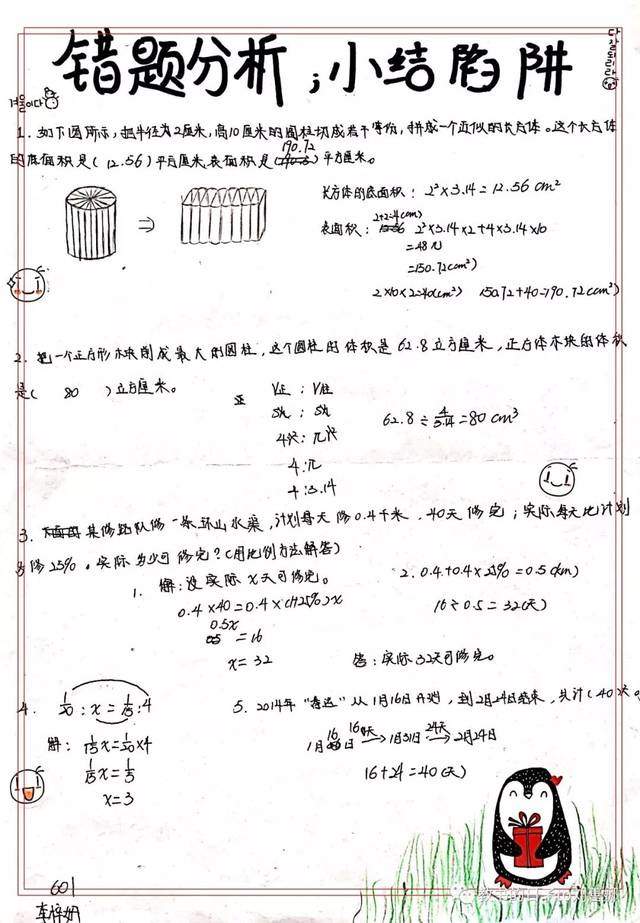 错题分析,小结陷阱
겨울이다
1. 如下图所示,把半径为2厘米,高10厘米的圆柱切成若干等份,拼成一个近似的长方体。这个长方体
190.72
的底面积是(12.56)平方厘米,表面积是( )平方厘米。
长方体的底面积:2²×3.14=12.56cm²
2+2=4(cm)
表面积: 2²×3.14×2+4×3.14×10
=48π
=150.72(cm²)
2×10×2=40(cm²) 150.72+40=190.72(cm²)
2. 把一个正方形木块削成最大的圆柱,这个圆柱的体积是62.8立方厘米,正方体木块的体积
是( 80 )立方厘米。
V正:V柱
Sh:Sh
4r²:πr²
4:π
4:3.14
62.8÷4/3.14=80cm³
3. 某修路队修一条环山水渠,计划每天修0.4千米,40天修完;实际每天比计划
多修25%。实际多少可修完?(用比例方法解答)
1. 解:设实际x天可修完。
0.4×40=0.4×(1+25%)x
0.5x
=16
x=32
2. 0.4+0.4×25%=0.5(km)
16÷0.5=32(天)
答:实际32天可修完。
4. 1/20:x=1/15:4
解:1/15x=1/20×4
1/15x=1/5
x=3
5. 2014年“春运”从1月16日开始,到2月24日结束,共计(40天)
16 16天 24天
1月 日→1月31日→2月24日
16+24=40(天)
601